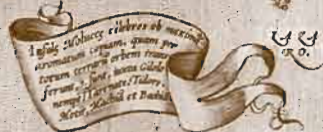 Insulę Moluccę celebres ob maximā
aromatum copiam, quam per
totum terrarū orbem trans
ferunt, sunt, iuxta Gilolo
nempe Tarnate, Tidore,
Motir, Machiā et Bachiā
RO.